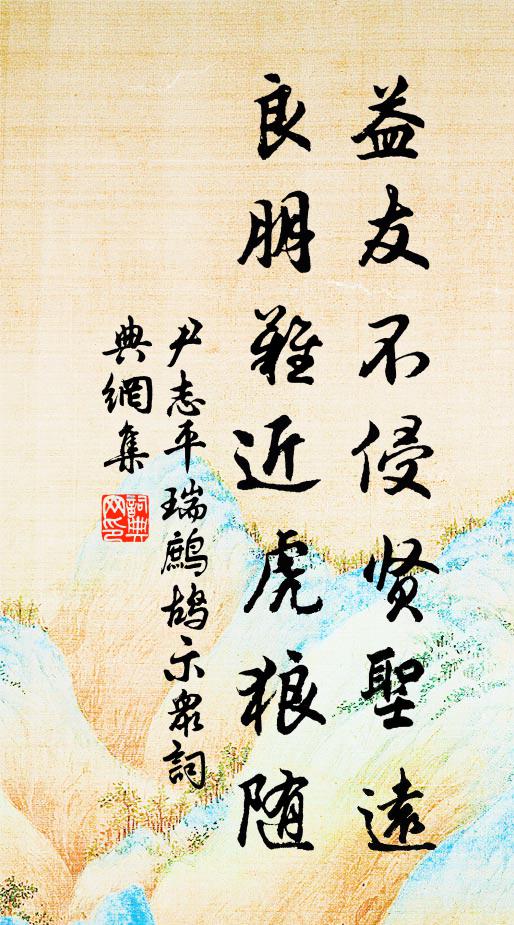 益友不侵贤聖遠
良朋難近虎狼随
尹志平瑞鷓鴣示衆詞
典網集
詞典
网印